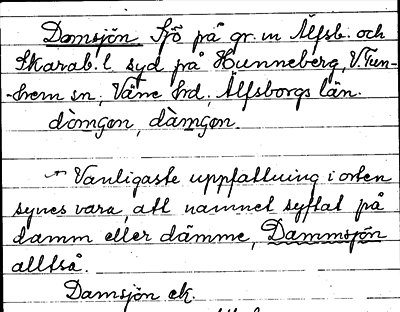 Damsjön Sjö på gr. m Älfsb. och
Skarab. l syd på Hunneberg, V. Tun-
-hem sn, Väne hrd, Älfsborgs län.
dòmʃɵn, dàmʃɵn.
Vanligaste uppfattning i orten
synes vara, att namnet syftat på
damm eller dämme, Dammsjön
alltså.
Damsjön ek.